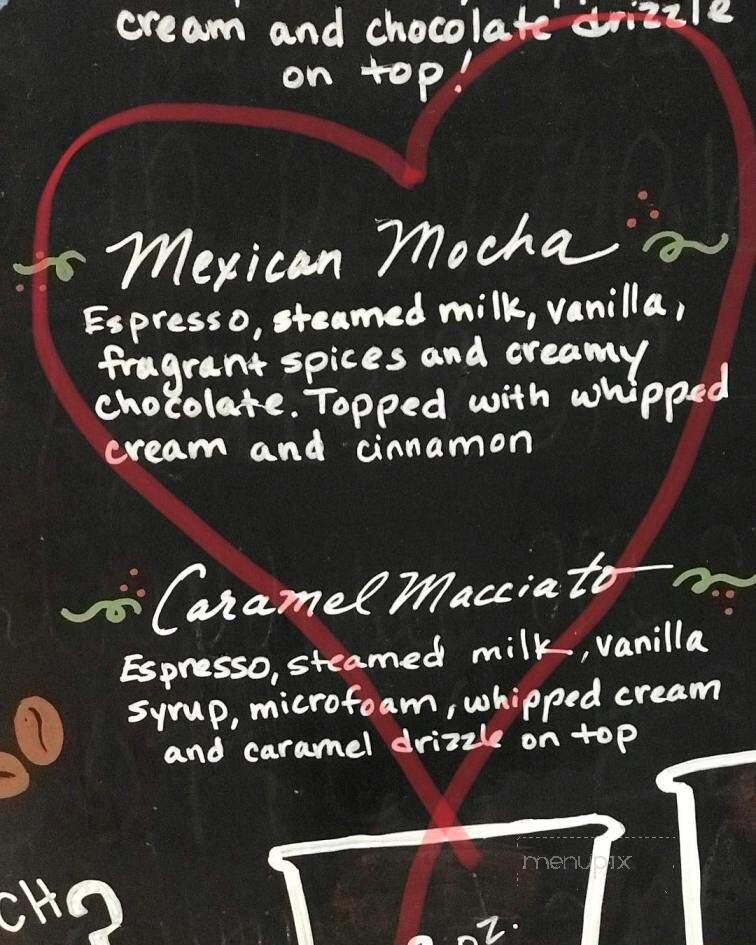 cream and chocolate drizzle
on top!
Mexican Mocha
Espresso, steamed milk, vanilla,
fragrant spices and creamy
chocolate. Topped with whipped
cream and cinnamon
Caramel Macciato
Espresso, steamed milk, vanilla
syrup, microfoam, whipped cream
and caramel drizzle on top
menupix
CH?
oz.